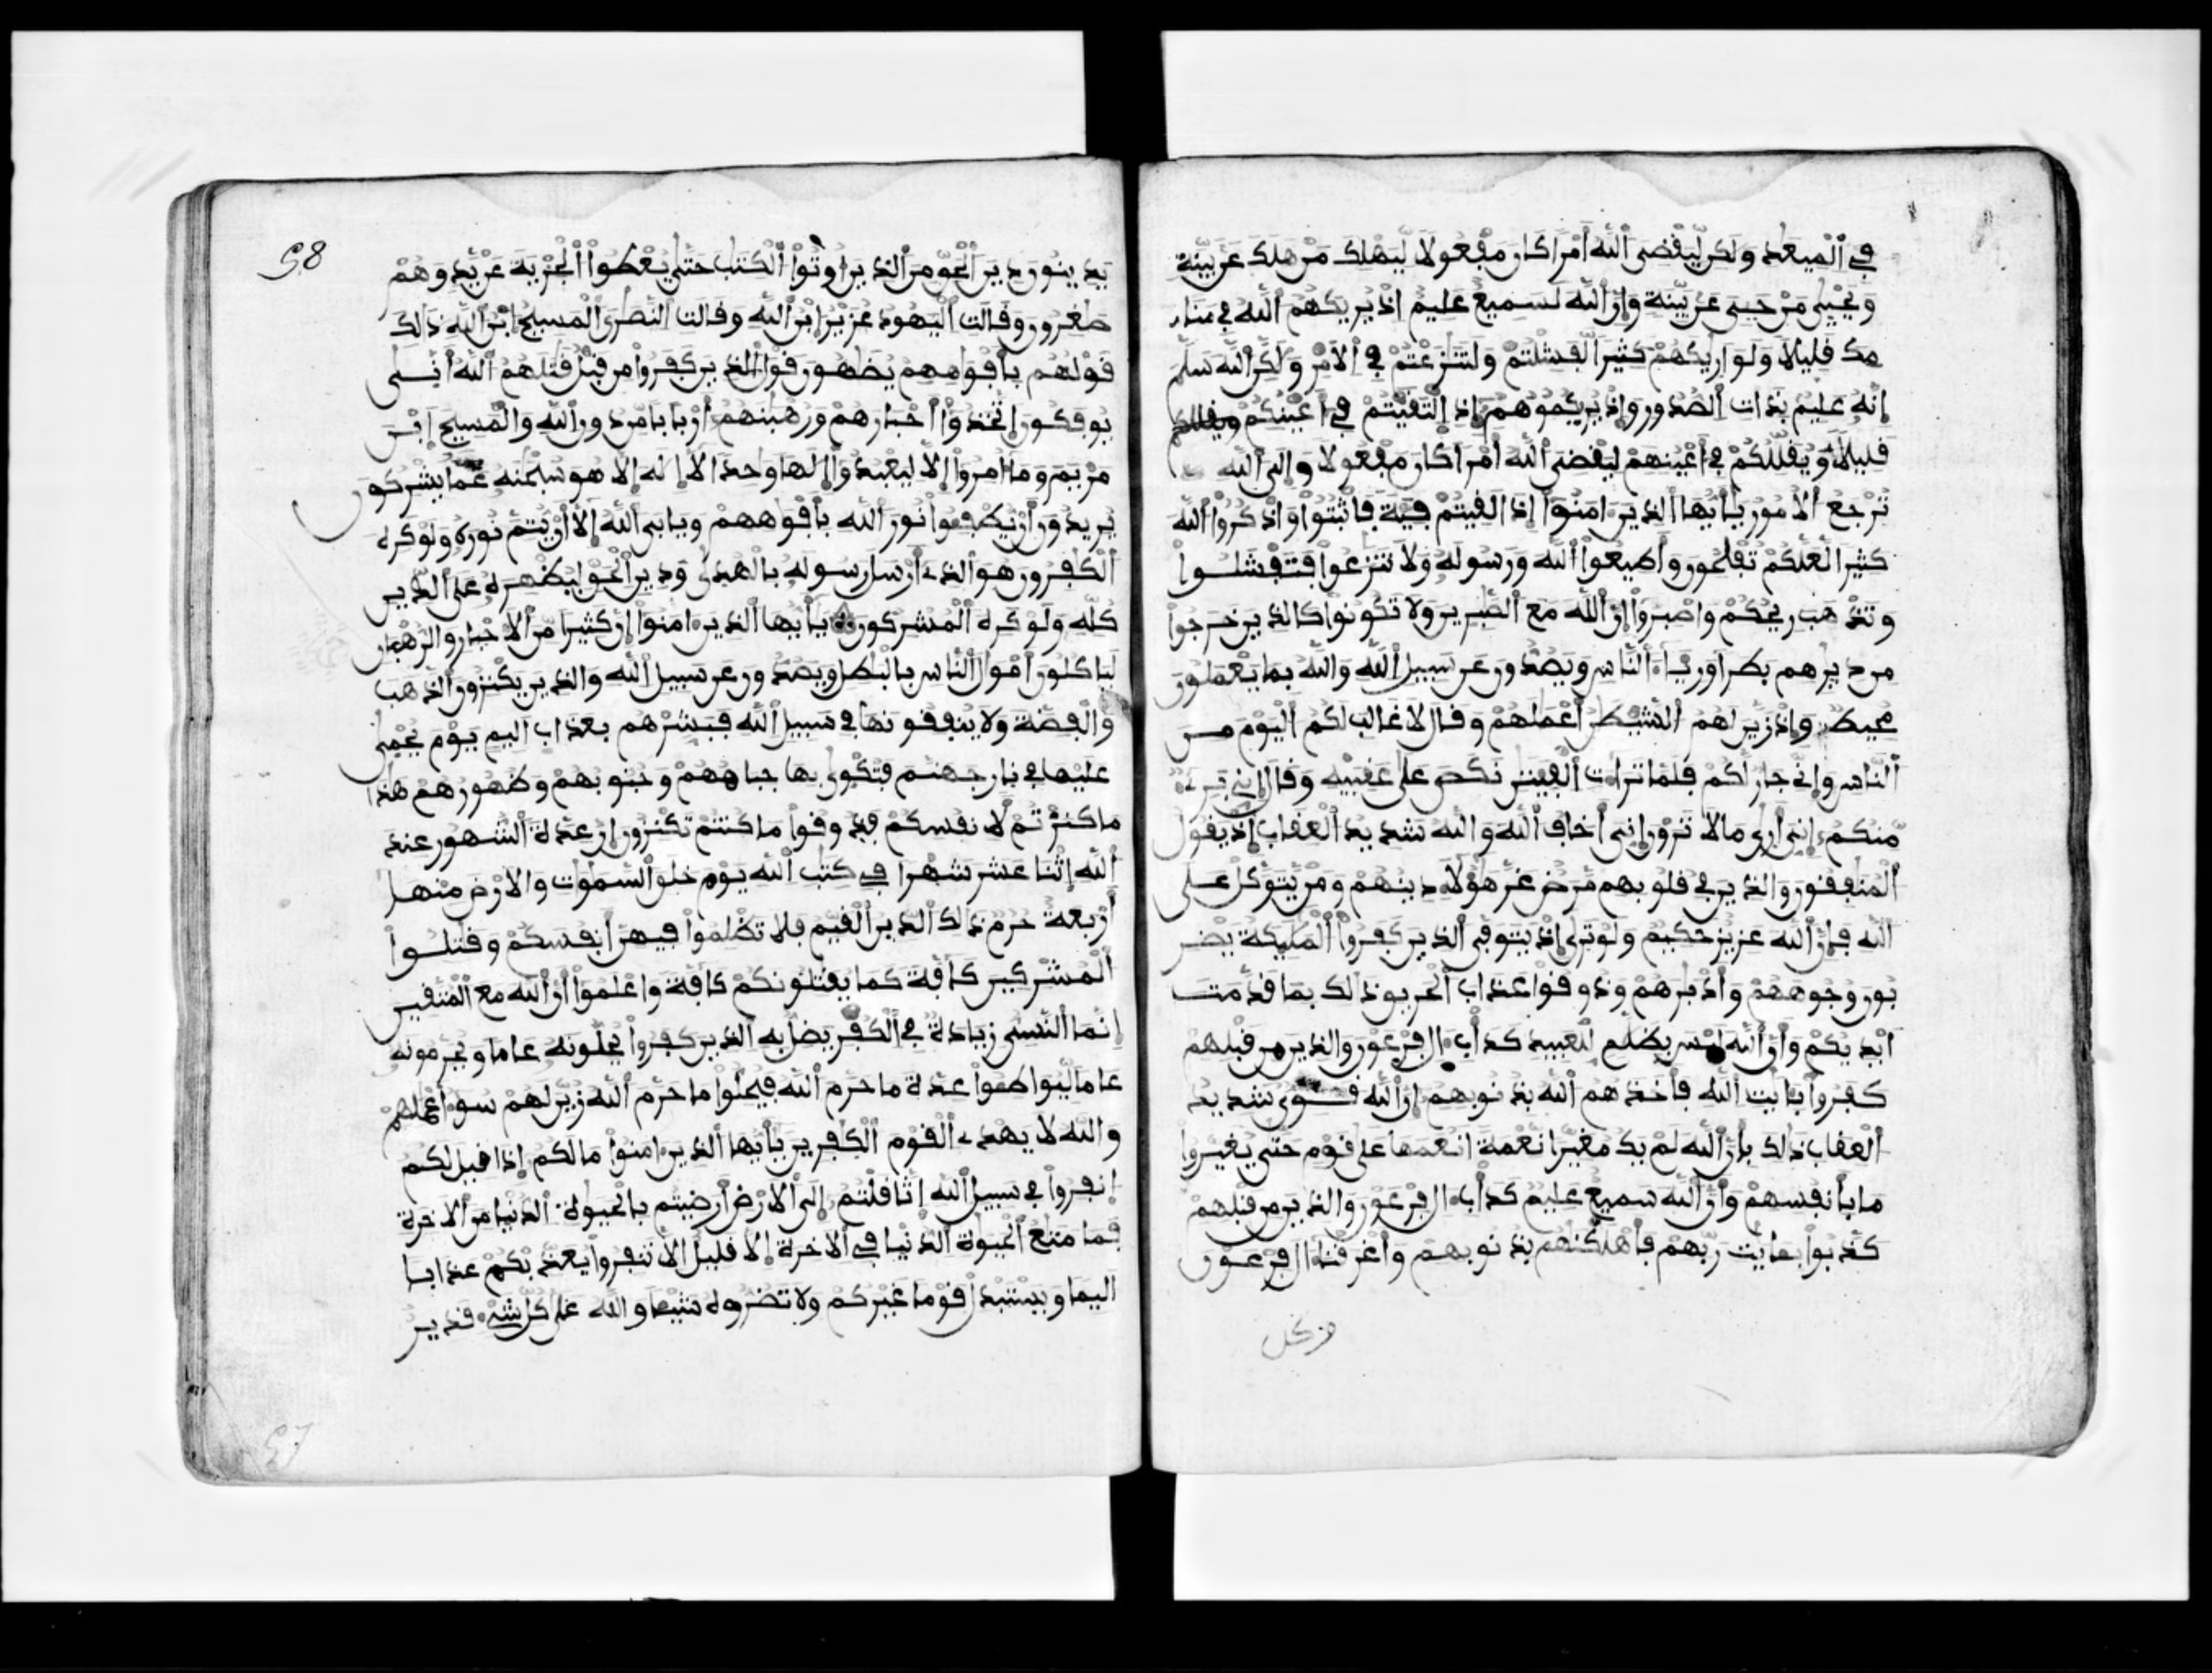 في الميعد ولكن ليقضي الله أمرا كان مفعولا ليهلك من هلك عن بينة
ويحيى من حيي عن بينة وإن الله لسميع عليم إذ يريكهم الله في منا
مك قليلا ولو اريكهم كثيرا لفشلتم ولتنزعتم في الامر ولكن الله سلم
إنه عليم بذات الصدور وإذ يريكموهم إذ التقيتم في أعينكم
قليلا ويقللكم في أعينهم ليقضي الله أمرا كان مفعولا وإلى الله
ترجع الأمور يأيها الذين امنوا إذا لقيتم فية فاثبتوا واذكروا الله
كثيرا لعلكم تفلحون وأطيعوا الله ورسوله ولا تنزعوا فتفشلوا
وتذهب ريحكم واصبروا إن الله مع الصبرين ولا تكونوا كالذين خرجوا
من ديرهم بطرا ورياء الناس ويصدون عن سبيل الله والله بما يعملون
محيط وإذ زين لهم الشيطن أعملهم وقال لا غالب لكم اليوم من
الناس وإني جار لكم فلما تراءت الفيتن نكص على عقبيه وقال إني بريء
منكم إني أرى ما لا ترون إني أخاف الله والله شديد العقاب إذ يقول
المنفقون والذين في قلوبهم مرض غر هؤلاء دينهم ومن يتوكل على
الله فإن الله عزيز حكيم ولو ترى إذ يتوفى الذين كفروا المليكة يضر
بون وجوههم وأدبرهم وذوقوا عذاب الحريق ذالك بما قدمت
أيديكم وأن الله ليس بظلم للعبيد كدأب ال فرعون والذين من قبلهم
كفروا بايت الله فأخذهم الله بذنوبهم إن الله قوي شديد
العقاب ذالك بأن الله لم يك مغيرا نعمة انعمها على قوم حتى يغيروا
ما بأنفسهم وأن الله سميع عليم كدأب ال فرعون والذين من قبلهم
كذبوا بايت ربهم فأهلكنهم بذنوبهم وأغرقنا ال فرعون
وكل
58
يدينون دين الحق من الذين أوتوا الكتب حتى يعطوا الجزية عن يد وهم
صغرون وقالت اليهود عزير ابن الله وقالت النصرى المسيح ابن الله ذالك
قولهم بأفوههم يضهون قول الذين كفروا من قبل قتلهم الله أنى
يوفكون إتخذوا أحبارهم ورهبنهم أربابا من دون الله والمسيح ابن
مريم وما أمروا إلا ليعبدوا إلها وحدا لا إله إلا هو سبحنه عما يشركون
يريدون أن يطفوا نور الله بأفوههم ويابى الله إلا أن يتم نوره ولو كره
الكفرون هو الذي أرسل رسوله بالهدى ودين الحق ليظهره على الدين
كله ولو كره المشركون يأيها الذين امنوا إن كثيرا من الاحبار والرهبان
لياكلون أمول الناس بالبطل ويصدون عن سبيل الله والذين يكنزون الذهب
والفضة ولا ينفقونها في سبيل الله فبشرهم بعذاب اليم يوم يحمى
عليها في نار جهنم فتكوى بها جباههم وجنوبهم وظهورهم هذا
ما كنزتم لأنفسكم فذوقوا ما كنتم تكنزون إن عدة الشهور عند
الله إثنا عشر شهرا في كتب الله يوم خلق السموت والارض منها
أربعة حرم ذالك الدين القيم فلا تظلموا فيهن أنفسكم وقتلوا
المشركين كافة كما يقتلونكم كافة واعلموا أن الله مع المتقين
إنما النسي زيادة في الكفر يضل به الذين كفروا يحلونه عاما ويحرمونه
عاما ليواطوا عدة ما حرم الله فيحلوا ما حرم الله زين لهم سوء أعملهم
والله لا يهدي القوم الكفرين يأيها الذين امنوا ما لكم إذا قيل لكم
انفروا في سبيل الله إثاقلتم إلى الارض أرضيتم بالحيوة الدنيا من الاخرة
فما متع الحيوة الدنيا في الاخرة إلا قليل إلا تنفروا يعذبكم عذابا
اليما ويستبدل قوما غيركم ولا تضروه شيا والله على كل شيء قدير